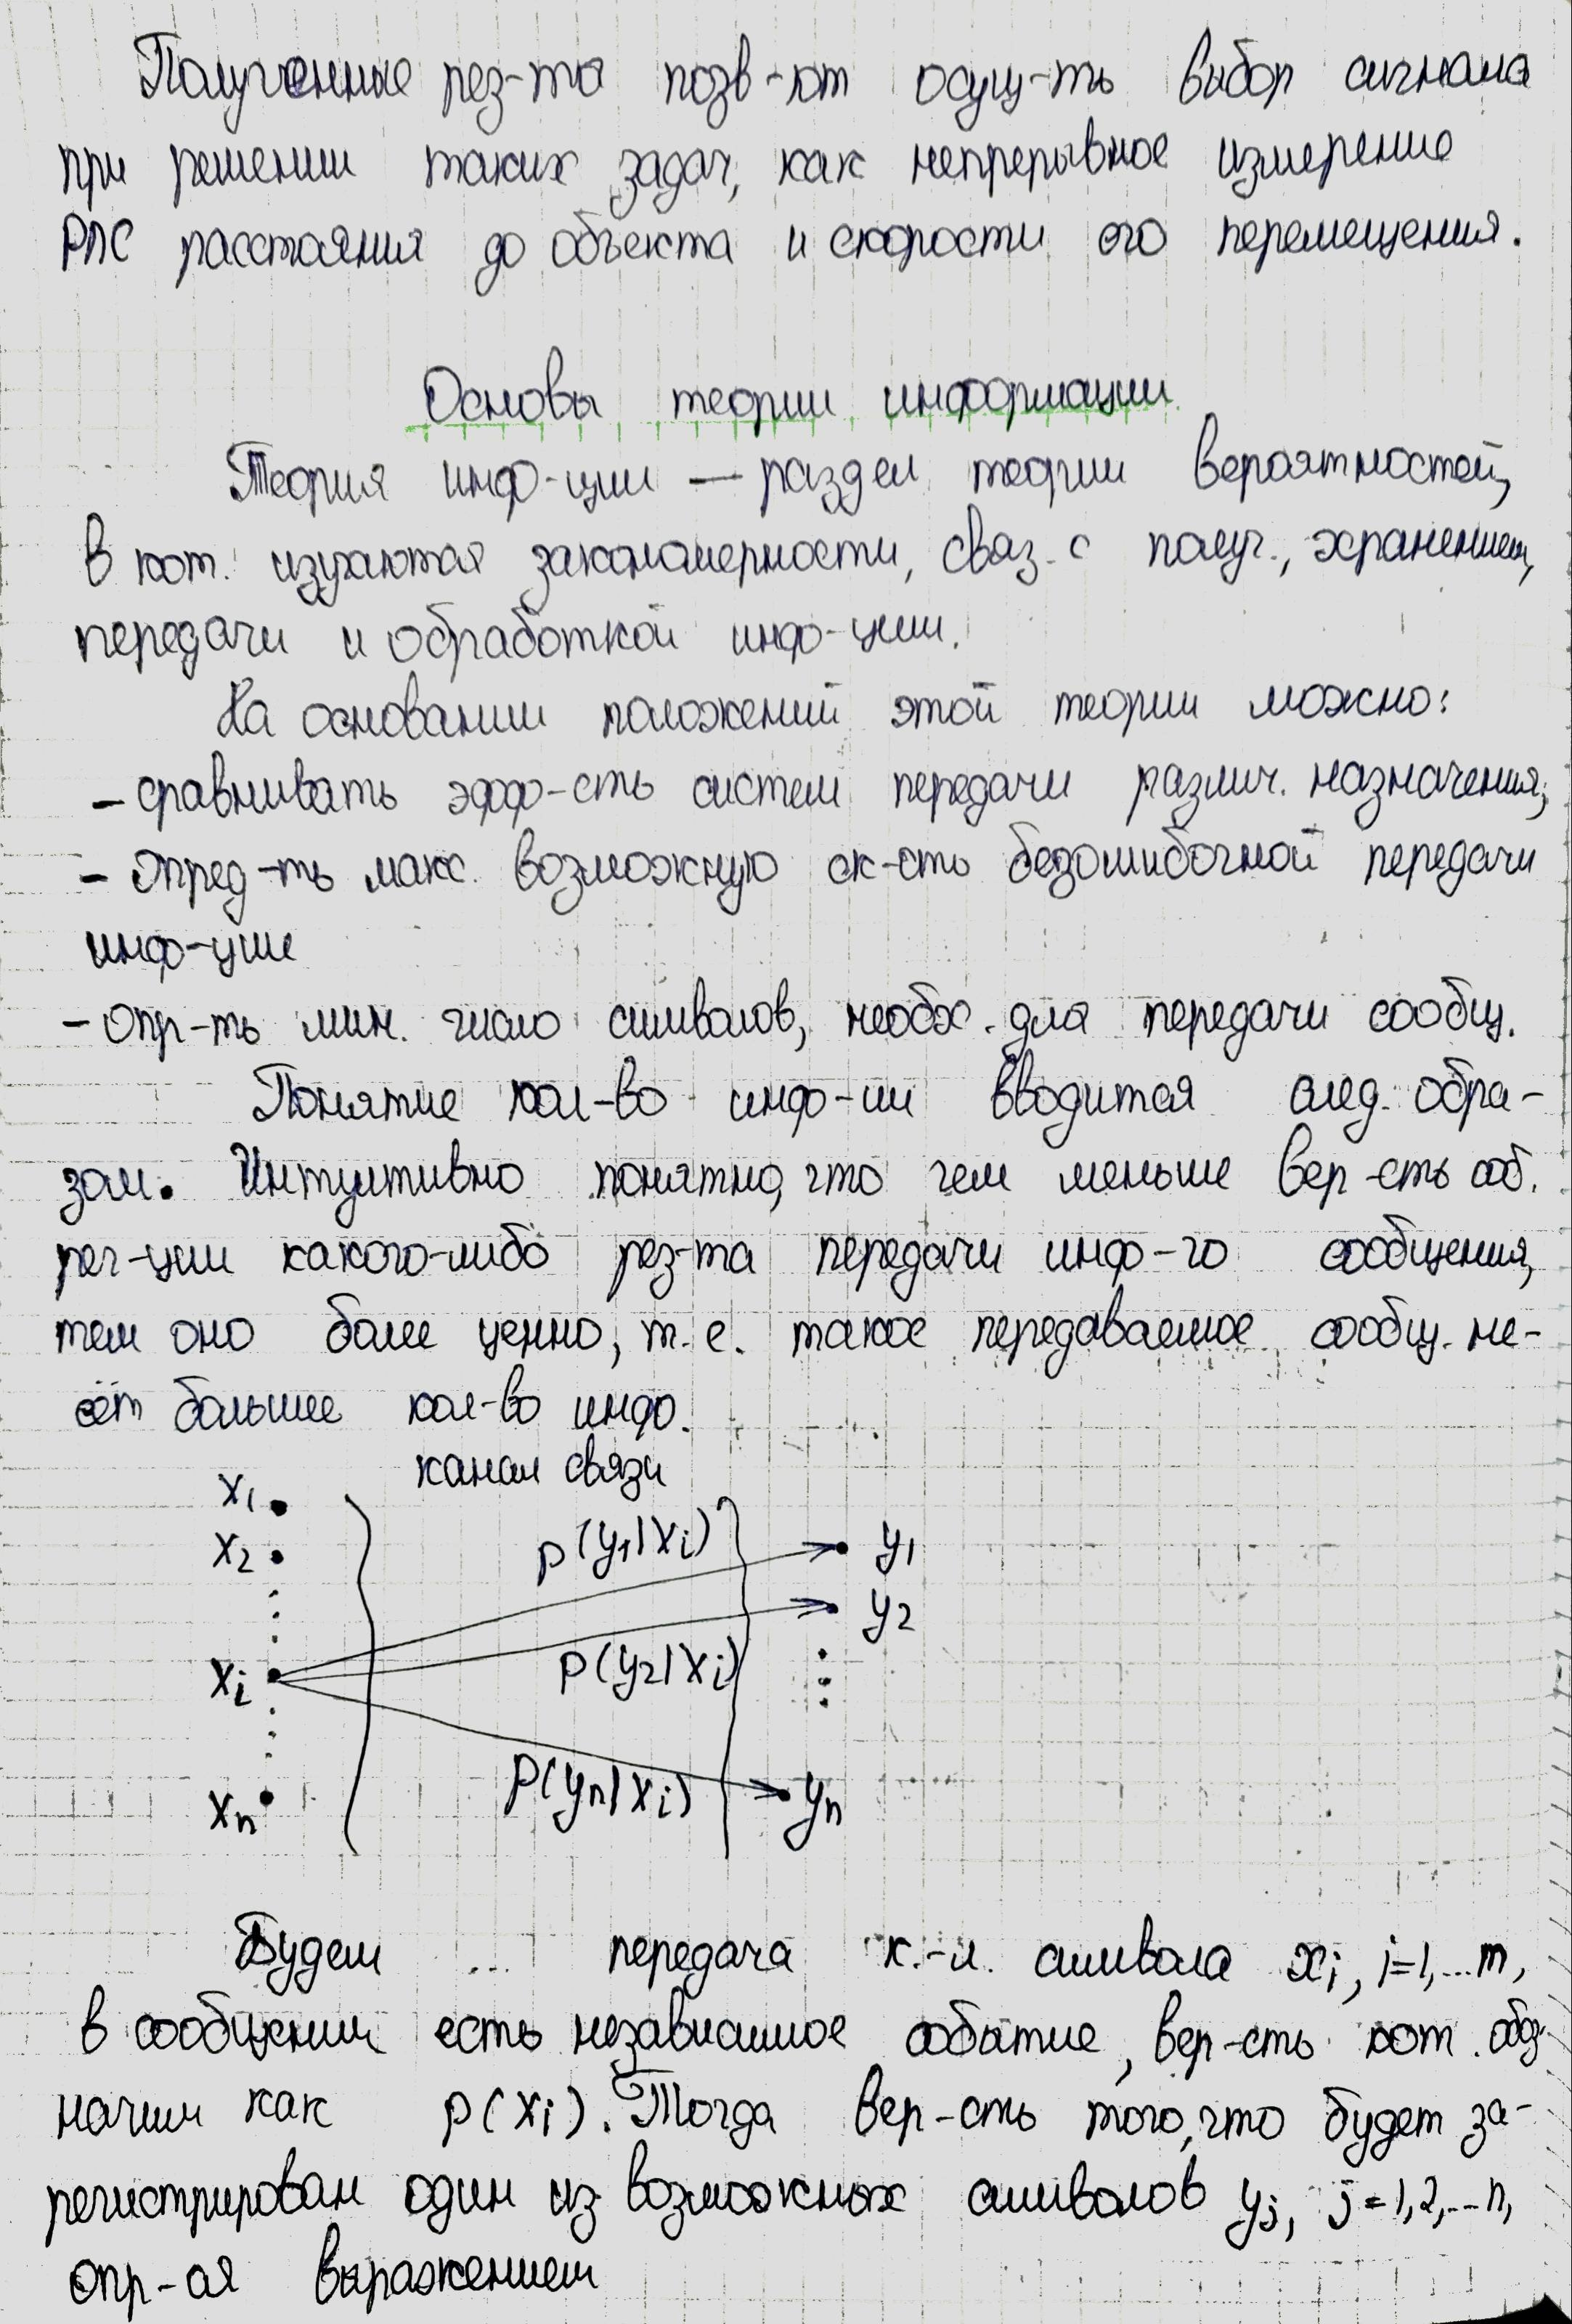 Полученные рез-ты позв-ют осущ-ть выбор сигнала
при решении таких задач, как непрерывное измерение
РЛС расстояния до объекта и скорости его перемещения.
Основы теории информации
Теория инф-ции — раздел теории вероятностей,
в кот. изучаются закономерности, связ. с получ., хранением,
передачи и обработкой инф-ции.
На основании положений этой теории можно:
- сравнивать эфф-сть систем передачи различ. назначения;
- опред-ть макс. возможную ск-сть безошибочной передачи
инф-ции
- опр-ть мин. число символов, необх. для передачи сообщ.
Понятие кол-во инф-ии вводится след. обра-
зом. Интуитивно понятно, что чем меньше вер-сть соб.
рег-ции какого-либо рез-та передачи инф-го сообщения,
тем оно более ценно, т.е. такое передаваемое сообщ. не-
сёт большее кол-во инф.
канал связи
x1
x2
xi
xn
p(y1|xi)
p(y2|xi)
p(yn|xi)
y1
y2
yn
Будем ... передача к.-л. символа xi, i=1,...m,
в сообщении есть независимое событие, вер-сть кот. обоз-
начим как p(xi). Тогда вер-сть того, что будет за-
регистрирован один из возможных символов yj, j=1,2,...n,
опр-ся выражением